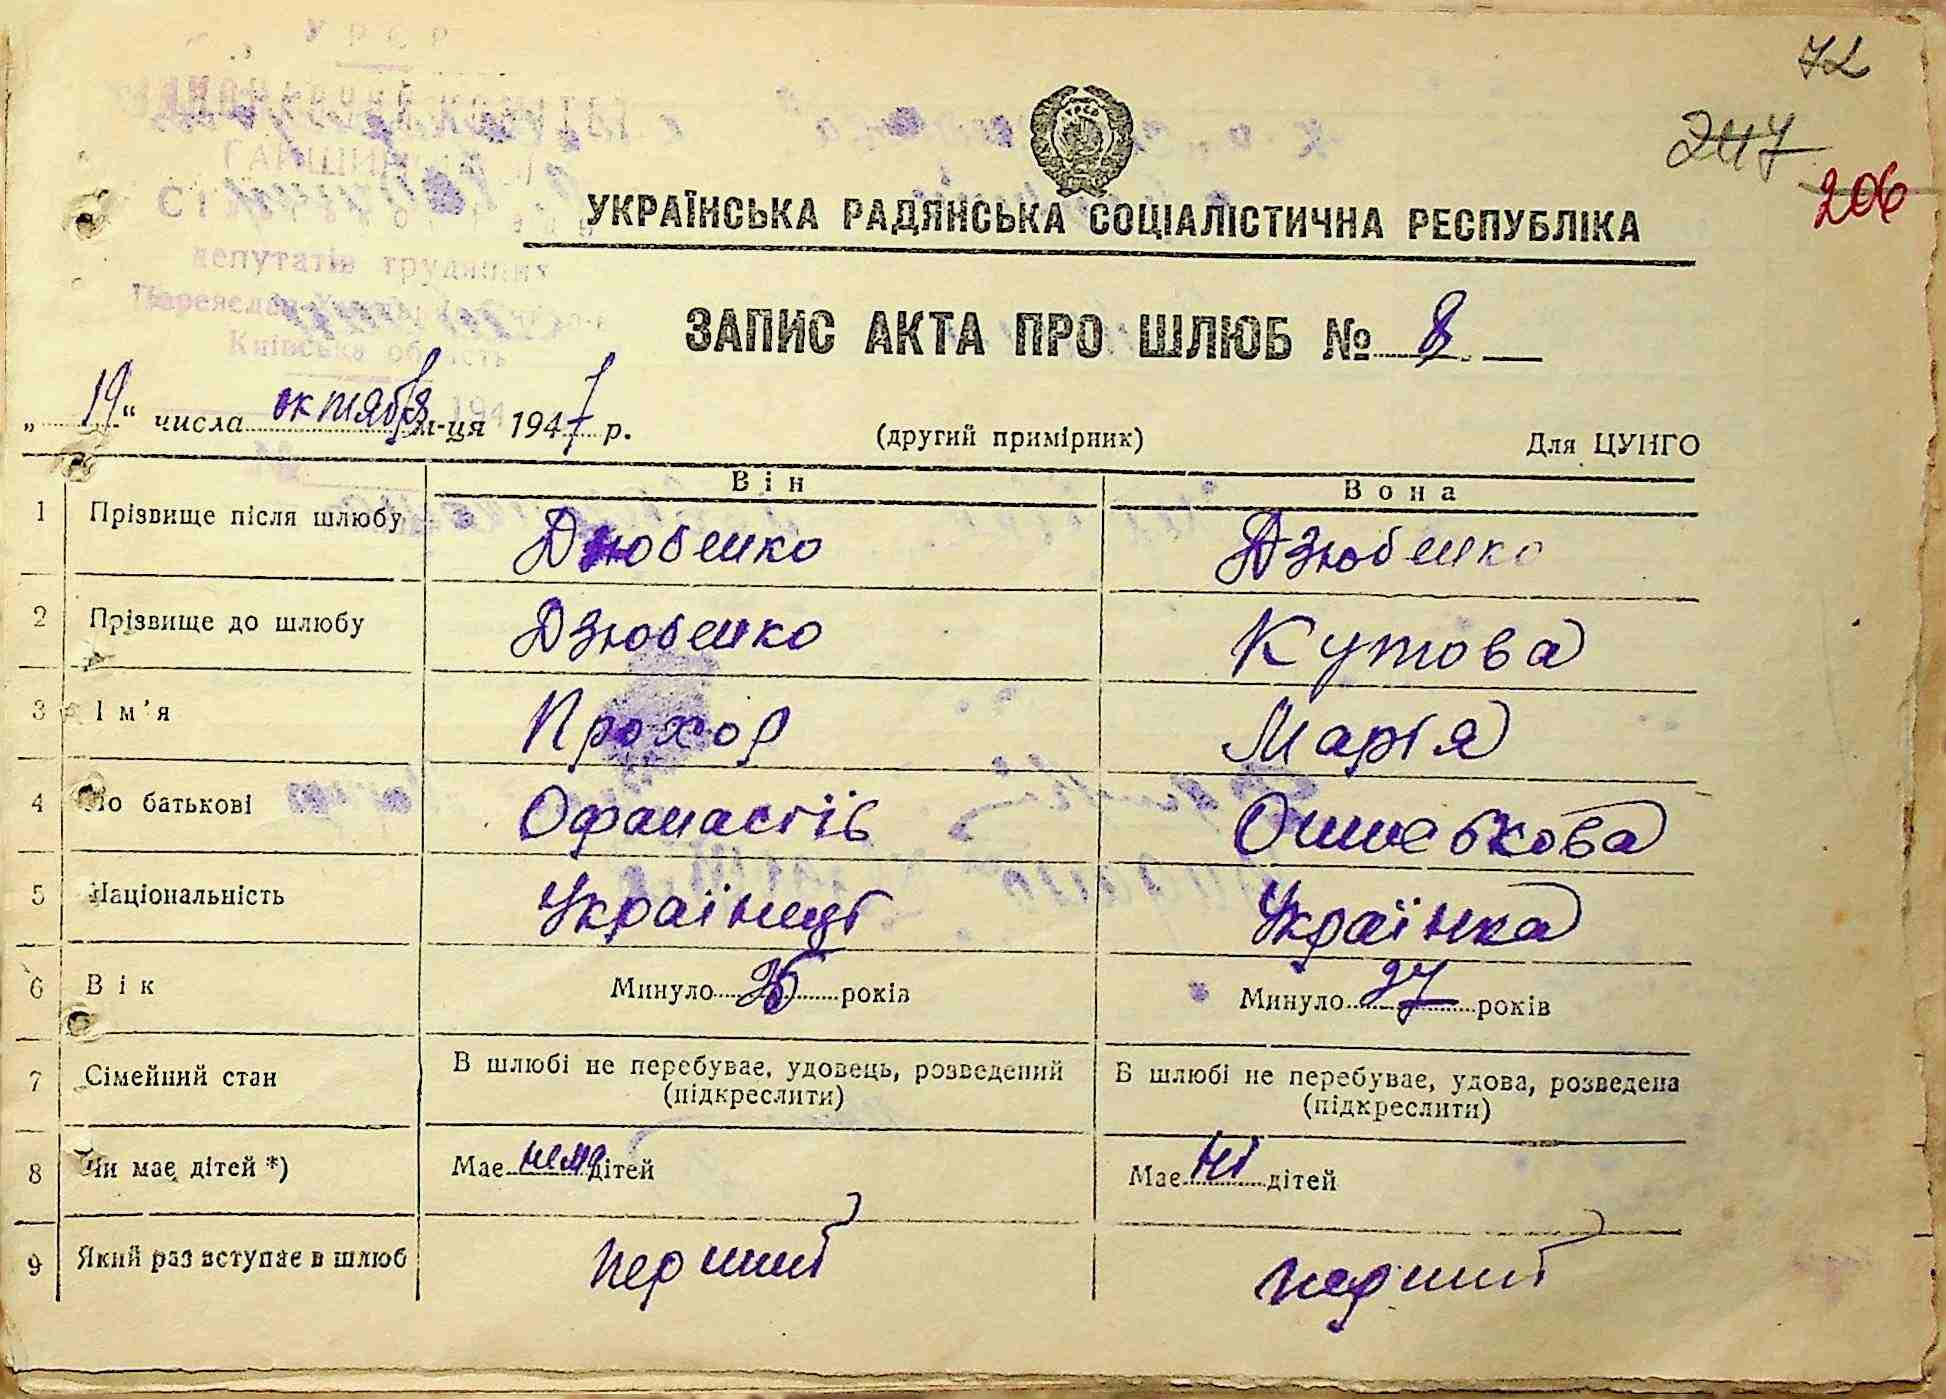 72
247
206
УРСР
депутатів трудящих
Київська область
УКРАЇНСЬКА РАДЯНСЬКА СОЦІАЛІСТИЧНА РЕСПУБЛІКА
ЗАПИС АКТА ПРО ШЛЮБ № 8
„19“ числа октября м-ця 1947 р.
(другий примірник)
Для ЦУНГО
Він Вона
1 Прізвище після шлюбу Дзюбенко Дзюбенко
2 Прізвище до шлюбу Дзюбенко Кутова
3 Ім'я Прохор Марія
4 По батькові Офанастів
5 Національність Українець Українка
6 Вік Минуло 35 років Минуло 37 років
7 Сімейний стан В шлюбі не перебуває, удовець, розведений (підкреслити) В шлюбі не перебуває, удова, розведена (підкреслити)
8 Чи має дітей *) Має нема дітей Має ні дітей
9 Який раз вступає в шлюб перший перший